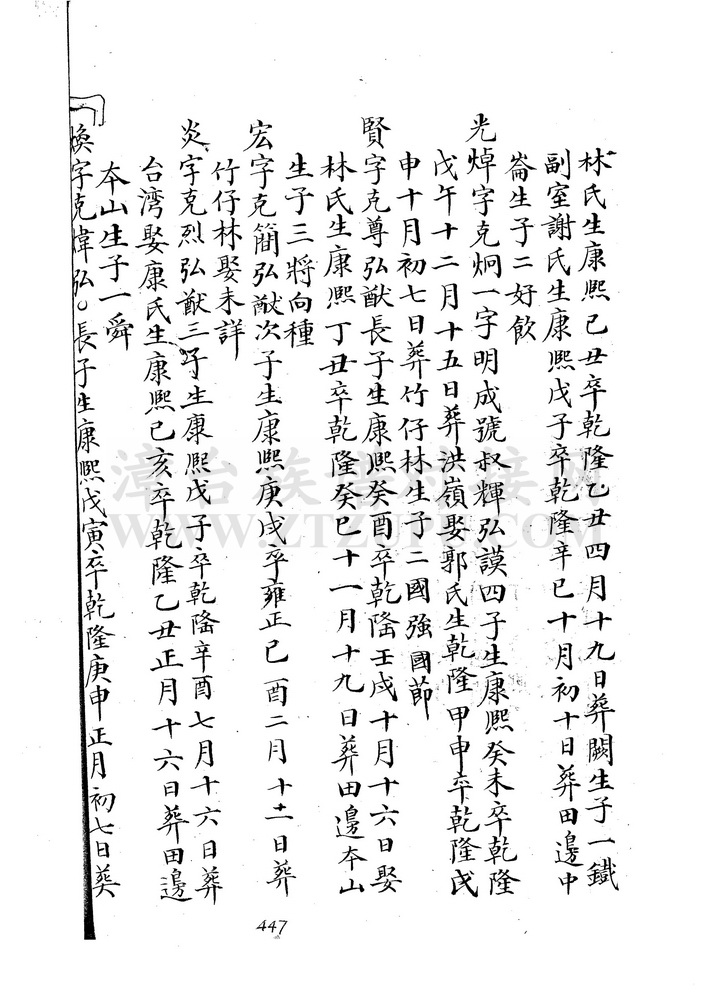 林氏生康熙己丑卒乾隆乙丑四月十九日葬闕生子一鐵
副室謝氏生康熙戊子卒乾隆辛巳十月初十日葬田邊中
崙生子二好飲
光焯字克炯一字明成號叔輝弘謨四子生康熙癸未卒乾隆
戊午十二月十五日葬洪嶺娶郭氏生乾隆甲申卒乾隆戊
申十月初七日葬竹仔林生子二國強國節
賢字克尊弘猷長子生康熙癸酉卒乾隆壬戌十月十六日娶
林氏生康熙丁丑卒乾隆癸巳十一月十九日葬田邊本山
生子三將向種
宏字克簡弘猷次子生康熙庚戌卒雍正己酉二月十二日葬
竹仔林娶未詳
炎字克烈弘猷三子生康熙戊子卒乾隆辛酉七月十六日葬
台湾娶康氏生康熙己亥卒乾隆乙丑正月十六日葬田邊
本山生子一舜
煥字克偉弘 長子生康熙戊寅卒乾隆庚申正月初七日葬
447
漳台族譜对接网
WWW.ZTZUPU.COM